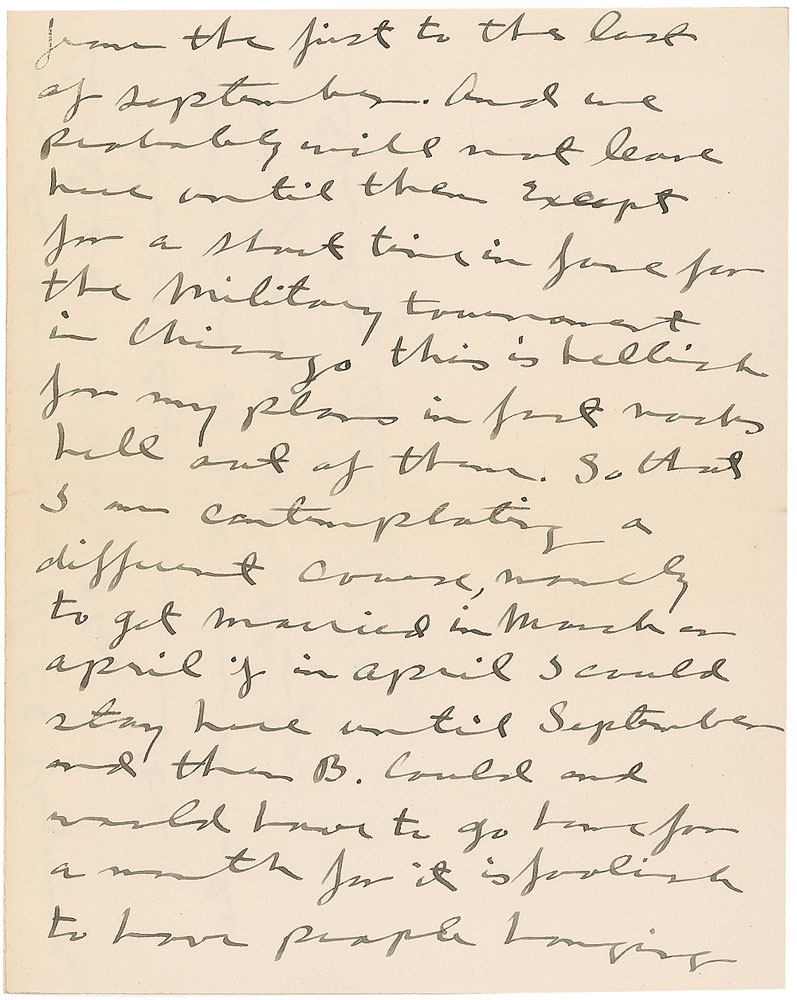 from the first to the last
of september. And we
probably will not leave
here until then Except
for a short time in June for
the Military tournament
in Chicago this is hellish
for my plans in fact nocks
hell out of them. So that
I am contemplating a
different course, namely
to get married in March or
april if in april I could
stay here until September
and then B. Could and
would have to go home for
a month for it is foolish
to have people hanging